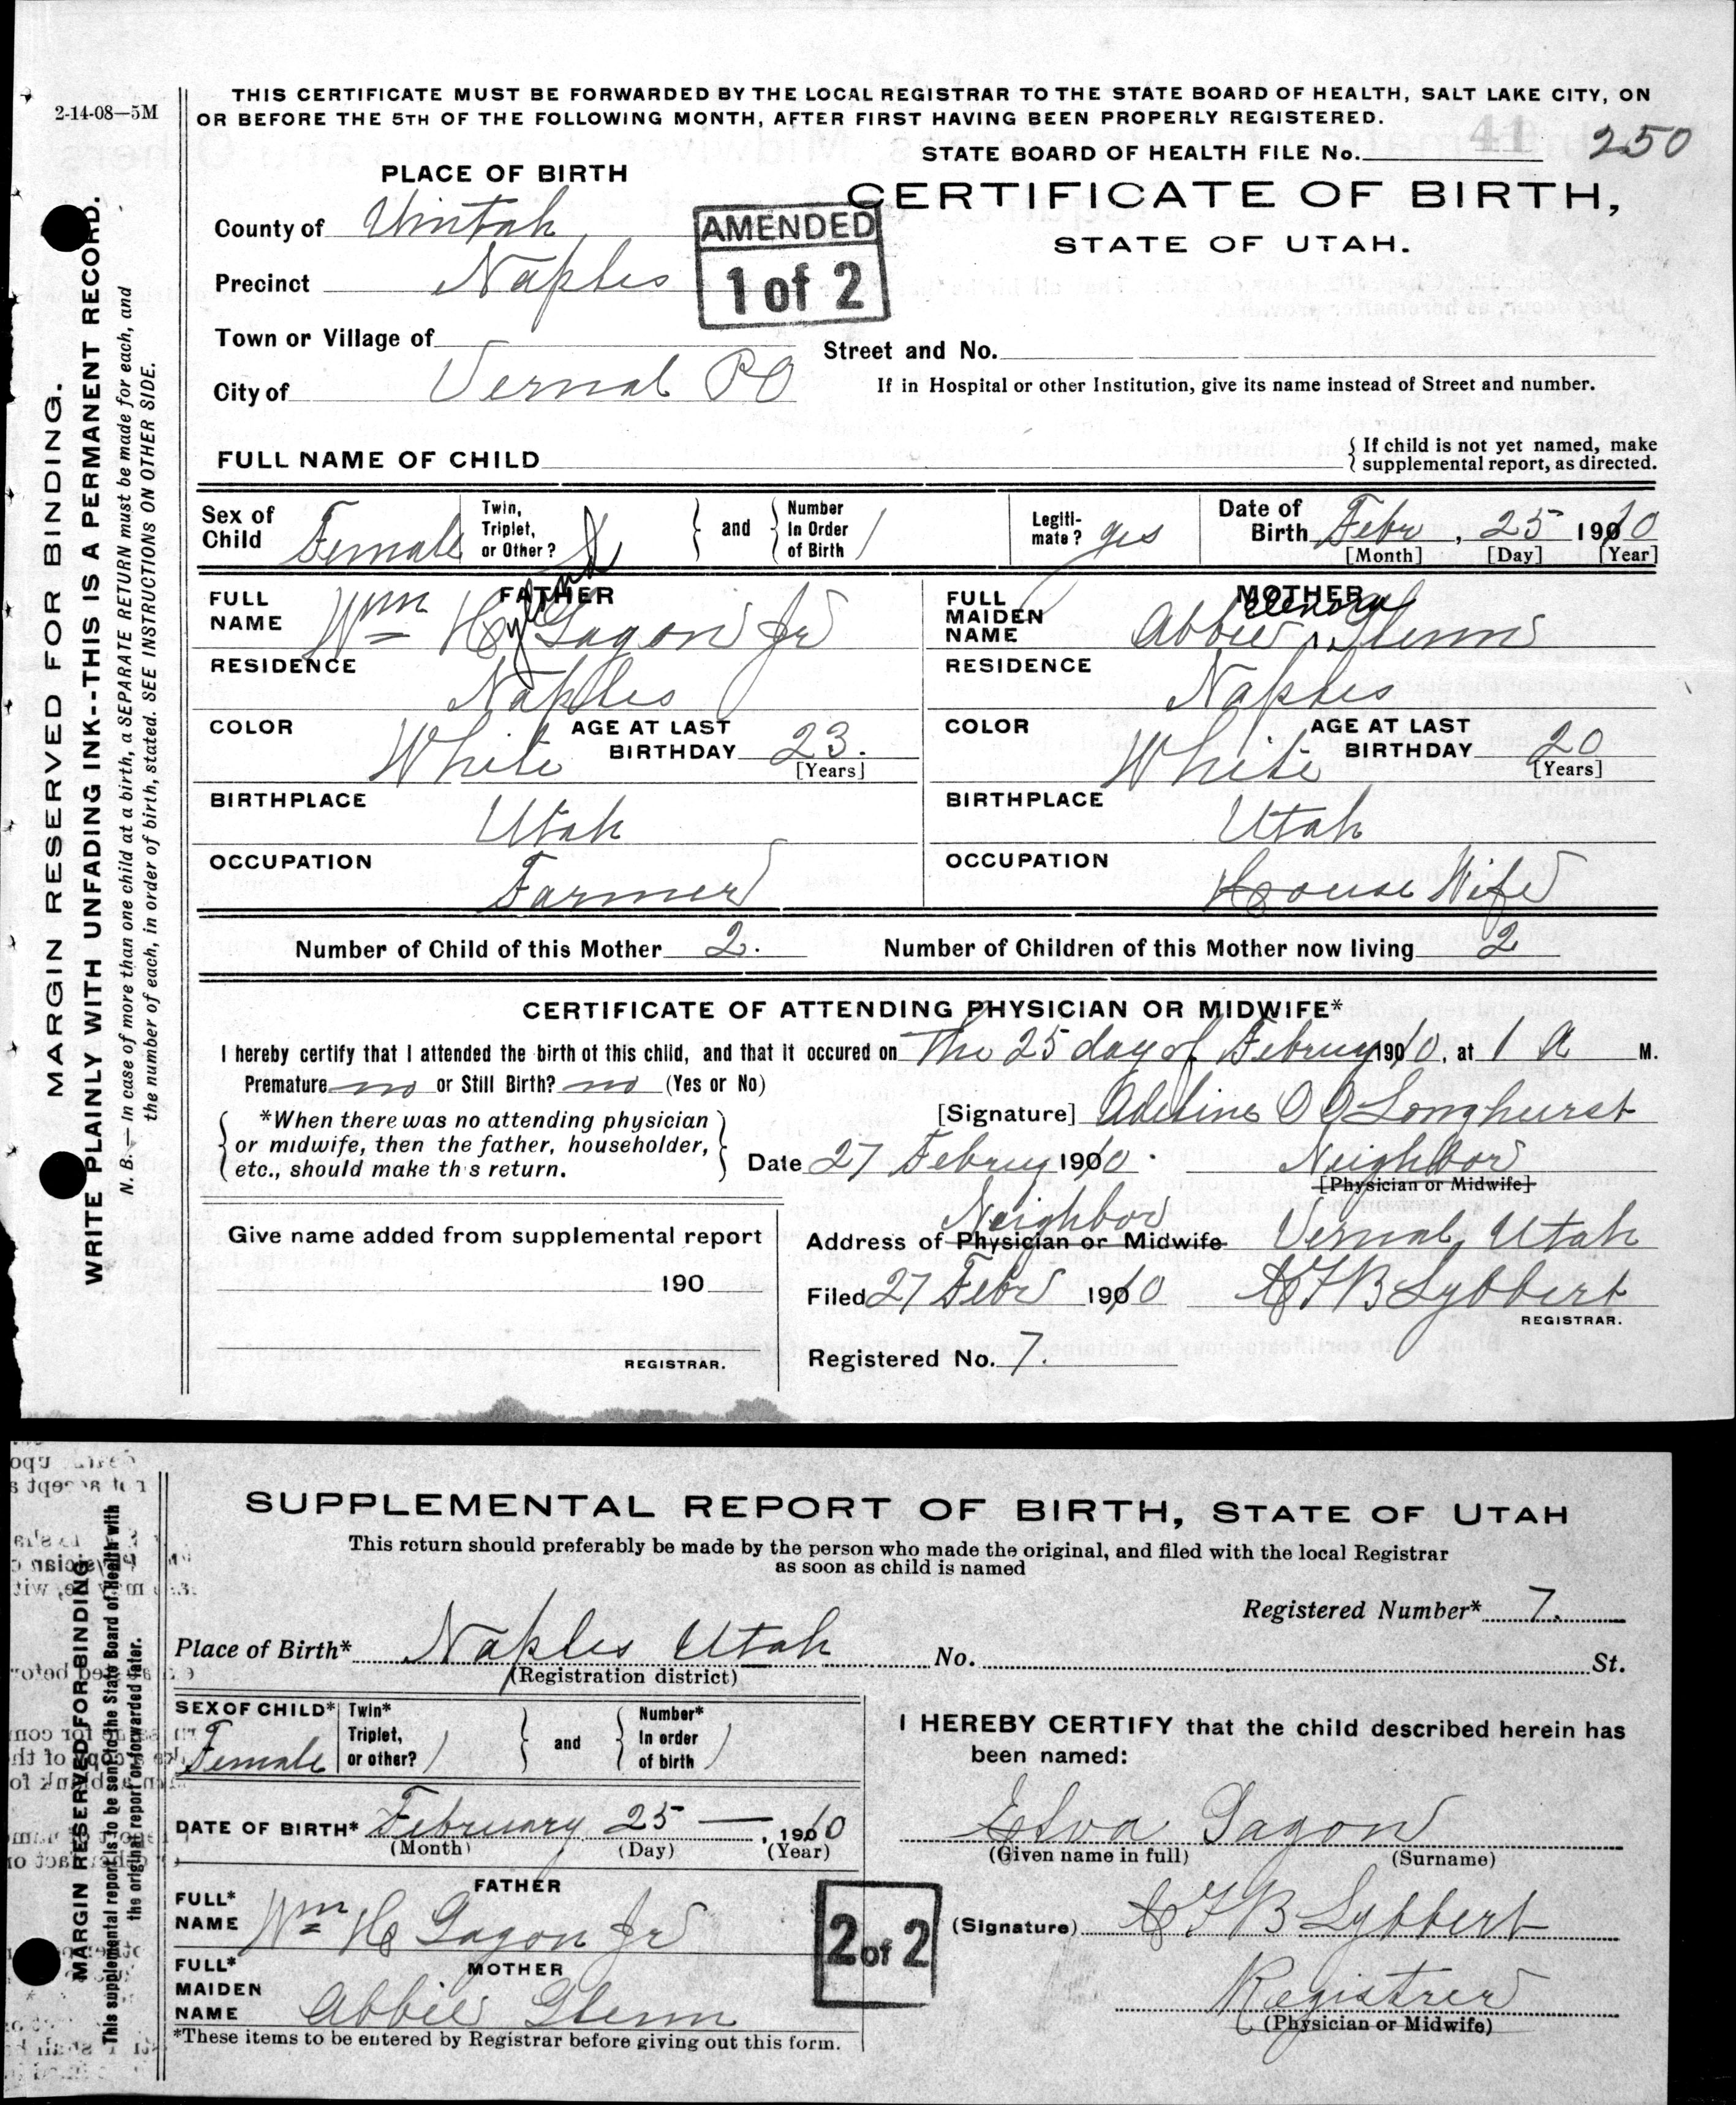 2-14-08—5M
THIS CERTIFICATE MUST BE FORWARDED BY THE LOCAL REGISTRAR TO THE STATE BOARD OF HEALTH, SALT LAKE CITY, ON
OR BEFORE THE 5TH OF THE FOLLOWING MONTH, AFTER FIRST HAVING BEEN PROPERLY REGISTERED.
STATE BOARD OF HEALTH FILE No. 41 250
PLACE OF BIRTH
CERTIFICATE OF BIRTH,
STATE OF UTAH.
County of Uintah
AMENDED
1 of 2
Precinct Naples
Town or Village of
Street and No.
City of Vernal PO
If in Hospital or other Institution, give its name instead of Street and number.
FULL NAME OF CHILD
{ If child is not yet named, make
supplemental report, as directed.
Sex of Child Female
Twin, Triplet, or Other?
and
Number In Order of Birth 1
Legiti-mate? yes
Date of Birth Febr, 25 1910
[Month] [Day] [Year]
FATHER
FULL NAME Wm Hy Gagon Jr
RESIDENCE Naples
COLOR White
AGE AT LAST BIRTHDAY 23.
[Years]
BIRTHPLACE
Utah
OCCUPATION
Farmer
MOTHER
FULL MAIDEN NAME Abbie Elenora Glenn
RESIDENCE Naples
COLOR White
AGE AT LAST BIRTHDAY 20
[Years]
BIRTHPLACE
Utah
OCCUPATION
House Wife
Number of Child of this Mother 2.
Number of Children of this Mother now living 2
CERTIFICATE OF ATTENDING PHYSICIAN OR MIDWIFE*
I hereby certify that I attended the birth of this child, and that it occured on The 25 day of Februy 1910, at 1 A M.
Premature no or Still Birth? no (Yes or No)
*When there was no attending physician
or midwife, then the father, householder,
etc., should make this return.
[Signature] Adeline O O Longhurst
Date 27 Februy 1910. Neighbor
[Physician or Midwife]
Neighbor
Address of Physician or Midwife Vernal, Utah
Filed 27 Febr 1910 C F B Lybbert
REGISTRAR.
Registered No. 7.
Give name added from supplemental report
190
REGISTRAR.
MARGIN RESERVED FOR BINDING.
WRITE PLAINLY WITH UNFADING INK--THIS IS A PERMANENT RECORD.
N. B.—In case of more than one child at a birth, a SEPARATE RETURN must be made for each, and
the number of each, in order of birth, stated. SEE INSTRUCTIONS ON OTHER SIDE.
SUPPLEMENTAL REPORT OF BIRTH, STATE OF UTAH
This return should preferably be made by the person who made the original, and filed with the local Registrar
as soon as child is named
Registered Number* 7.
Place of Birth* Naples Utah No. St.
(Registration district)
SEX OF CHILD* Female
Twin* Triplet, or other? 1
and
Number* In order of birth 1
DATE OF BIRTH* February 25 — , 1910
(Month) (Day) (Year)
FATHER
FULL* NAME Wm H Gagon Jr
MOTHER
FULL* MAIDEN NAME Abbie Glenn
*These items to be entered by Registrar before giving out this form.
2 of 2
I HEREBY CERTIFY that the child described herein has
been named:
Elva Gagon
(Given name in full) (Surname)
(Signature) C F B Lybbert
Registrer
(Physician or Midwife)
MARGIN RESERVED FOR BINDING
This supplemental report is to be sent to the State Board of Health with
the original report or forwarded later.